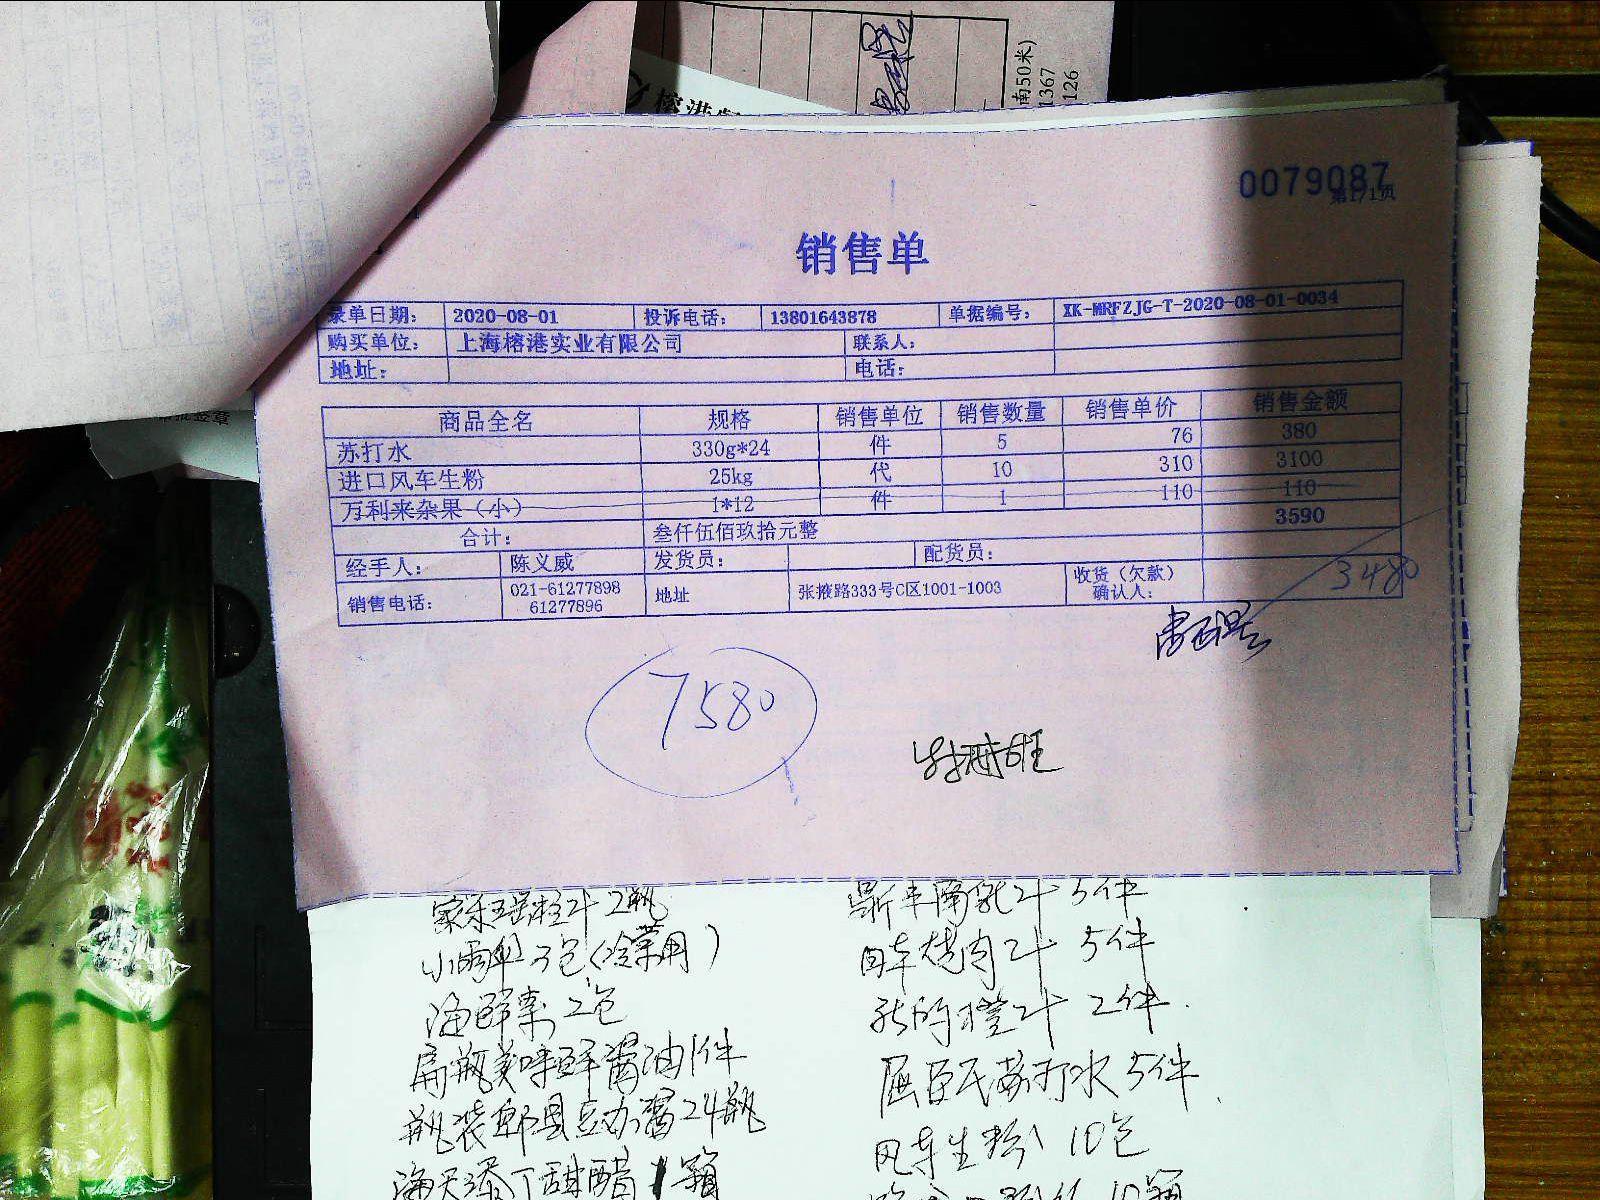 南50米)
1367
126
榕港
0079087
第1/1页
销售单
录单日期： 2020-08-01 投诉电话： 13801643878 单据编号： XK-MRFZJG-T-2020-08-01-0034
购买单位： 上海榕港实业有限公司 联系人：
地址： 电话：
商品全名 规格 销售单位 销售数量 销售单价 销售金额
苏打水 330g*24 件 5 76 380
进口风车生粉 25kg 代 10 310 3100
万利来杂果（小） 1*12 件 1 110 110
合计： 叁仟伍佰玖拾元整 3590
经手人： 陈义威 发货员： 配货员：
销售电话： 021-61277898 61277896 地址 张掖路333号C区1001-1003 收货（欠款）确认人：
3480
7580
签章
2瓶 5件
3包(冷菜用) 烧肉汁 5件
海鲜素 2包 橙汁 2件
扁瓶美味鲜酱油1件 屈臣氏苏打水5件
瓶装郫县豆办酱24瓶 风车生粉 10包
海天添丁甜醋1箱 10箱